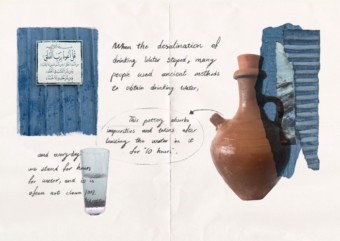 قل أعوذ برب الفلق
When the desalination of
drinking water stoped, many
people used ancient methods
to obtain drinking water,
This pottery absorbs
impurities and toxins after
leaving the water in it
for "10 hours".
and everyday
we stand for hours
for water, and it is
often not clean